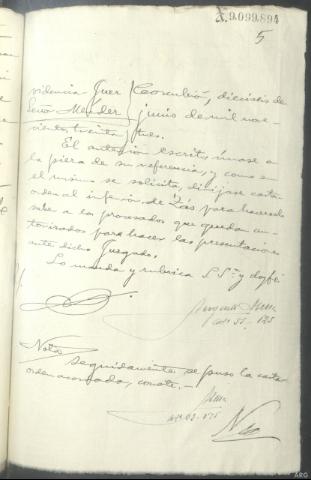 9.099.894
5
videncia Juez Corcubión, dieciseis de
Señor Méndez junio de mil nove-
cientos treinta y tres.
El anterior escrito únase a
la pieza de su referencia, y como en
el mismo se solicita, diríjase carta
orden al inferior de Zás para hacerles
saber a los procesados que quedan au-
torizados para hacer las presentaciones
ante dicho Juzgado.
Lo manda y rubrica S.Sª. y doy fé
Nota
Seguidamente se puso la carta
orden acordada, conste.-